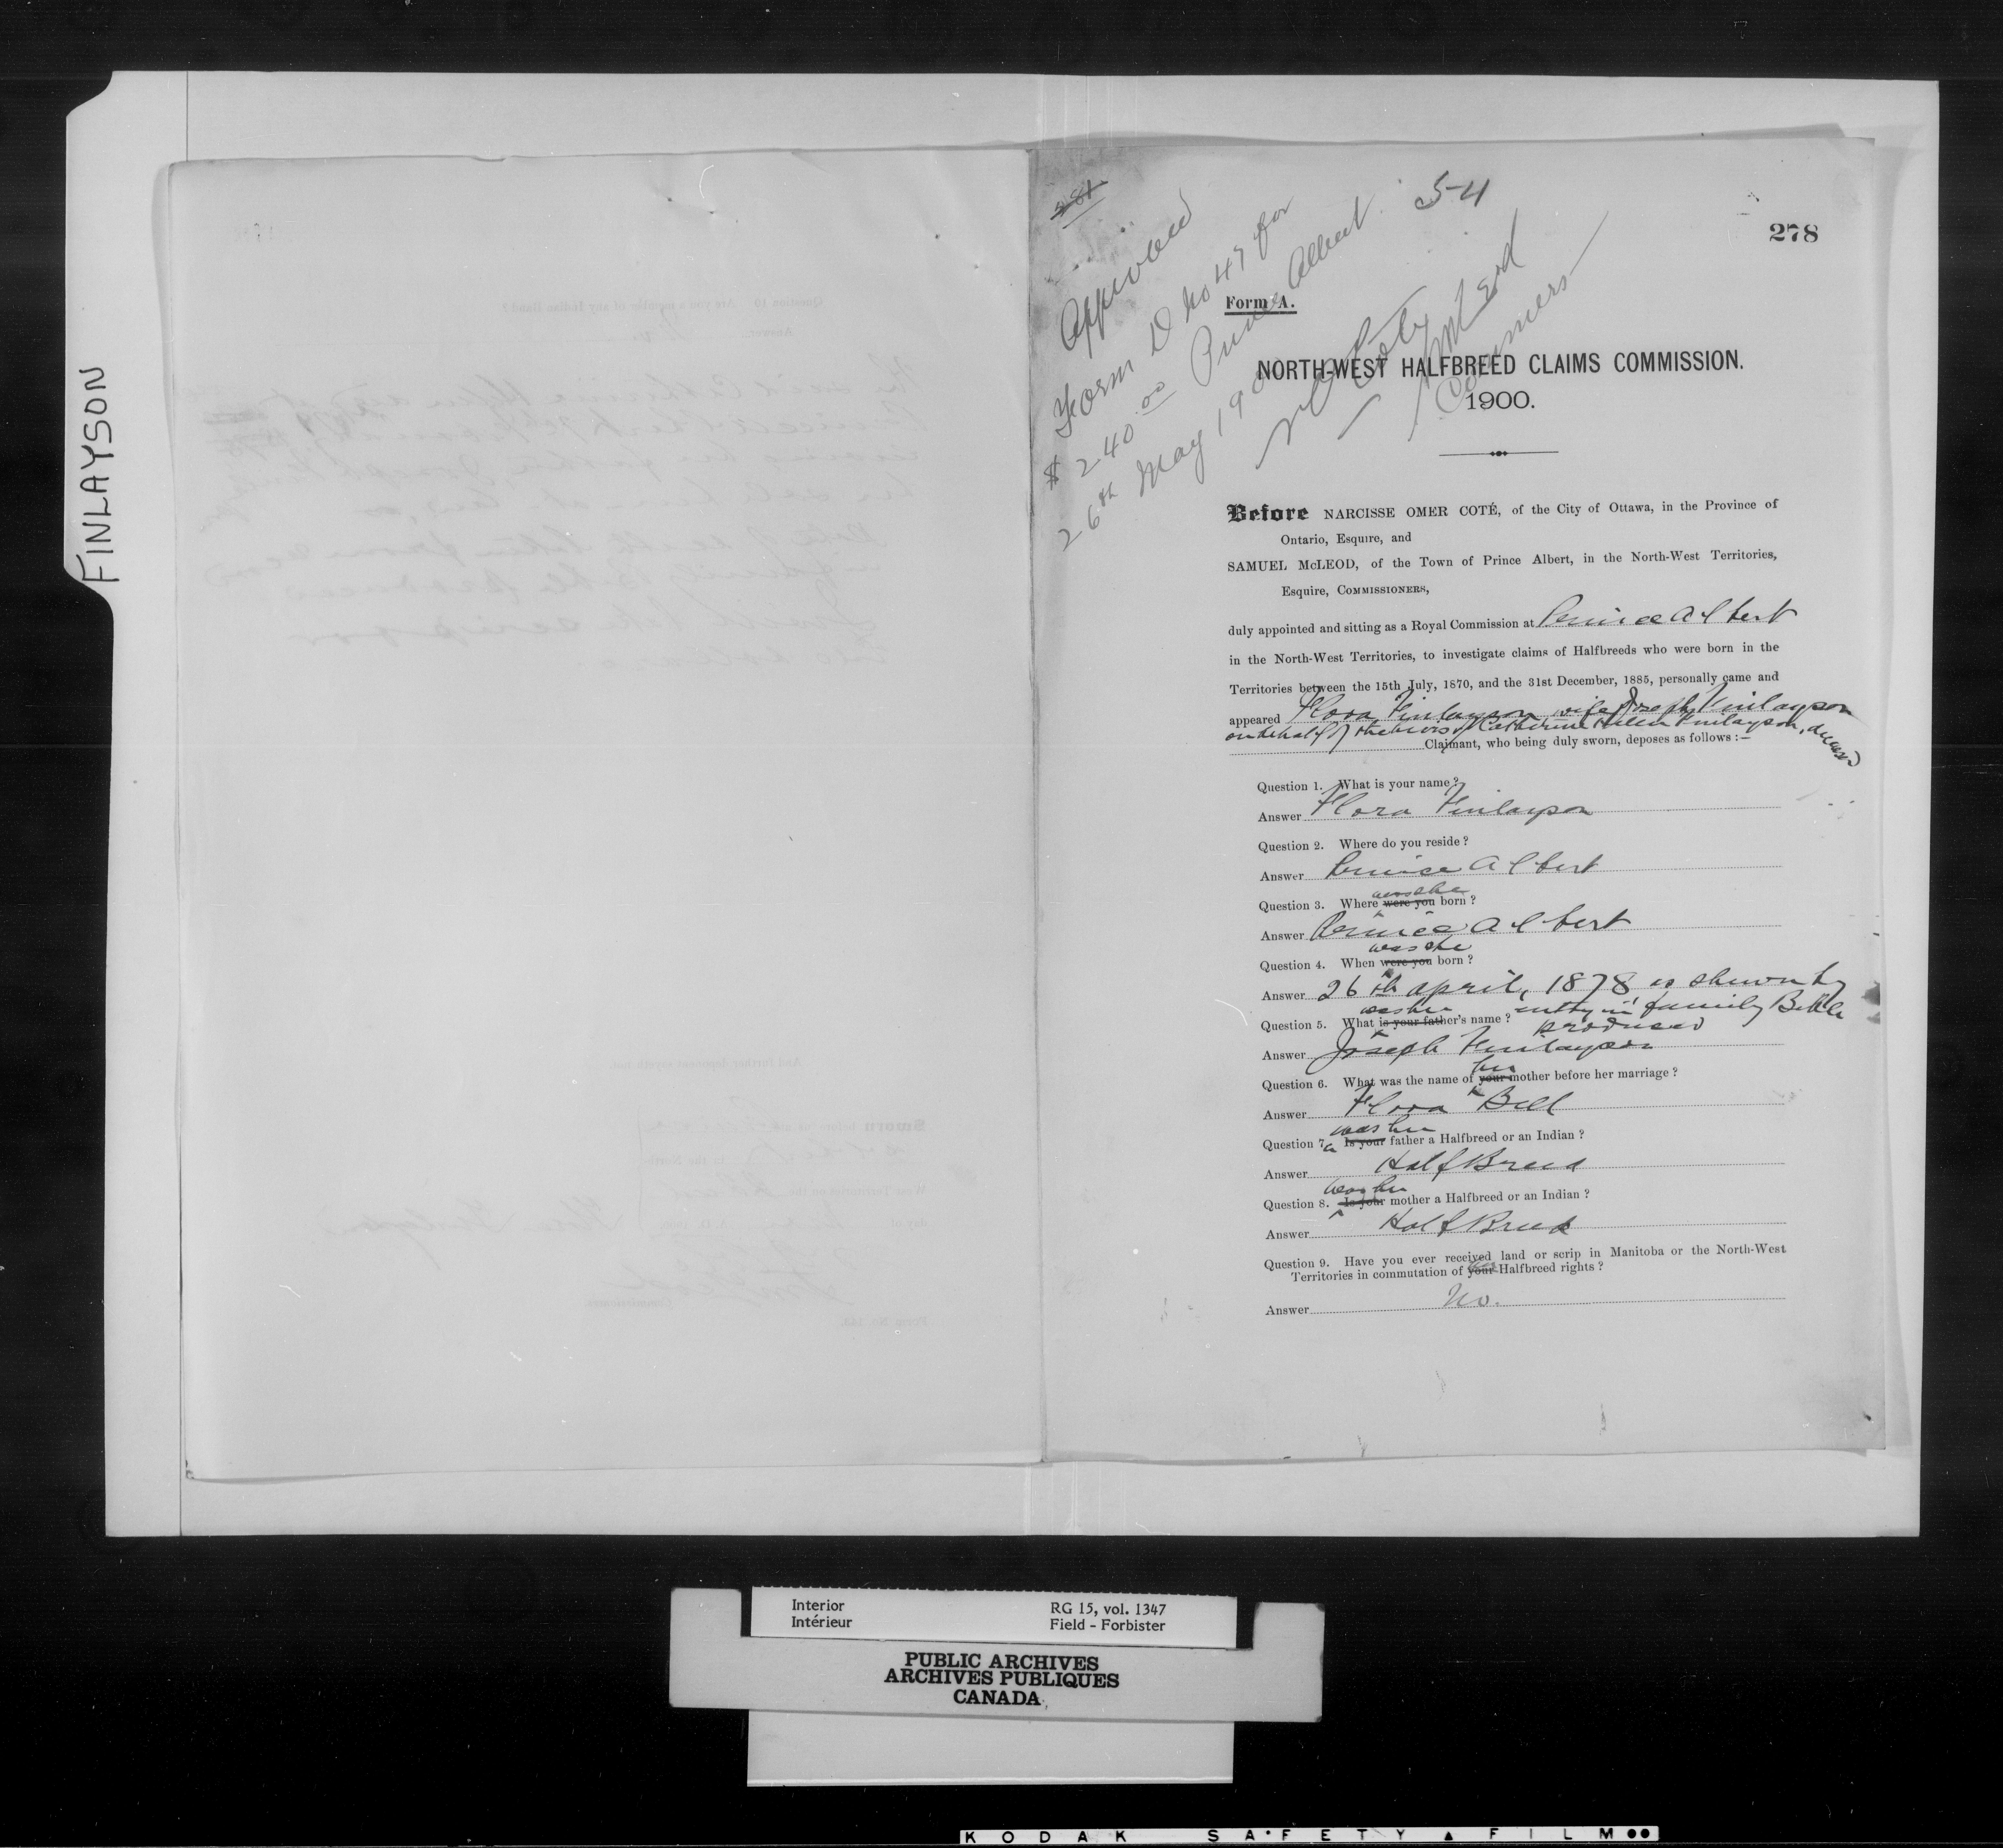 FINLAYSON
281
54
278
Approved
Form D No 47 for
$240.00 Prince Albert
26th May 190
N O Coté
Commers
Form A.
NORTH-WEST HALFBREED CLAIMS COMMISSION.
1900.
Before NARCISSE OMER COTÉ, of the City of Ottawa, in the Province of
Ontario, Esquire, and
SAMUEL McLEOD, of the Town of Prince Albert, in the North-West Territories,
Esquire, COMMISSIONERS,
duly appointed and sitting as a Royal Commission at Prince Albert
in the North-West Territories, to investigate claims of Halfbreeds who were born in the
Territories between the 15th July, 1870, and the 31st December, 1885, personally came and
appeared Flora Finlayson, wife Joseph Finlayson
on behalf of the heirs of Catherine Helen Finlayson, deceased
Claimant, who being duly sworn, deposes as follows :—
Question 1. What is your name ?
Answer Flora Finlayson
Question 2. Where do you reside ?
Answer Prince Albert
was she
Question 3. Where were you born ?
Answer Prince Albert
was she
Question 4. When were you born ?
Answer 26th April, 1878 as shewn by
entry in family Bible
produced
was her
Question 5. What is your father's name ?
Answer Joseph Finlayson
her
Question 6. What was the name of your mother before her marriage ?
Answer Flora Bell
was her
Question 7. Is your father a Halfbreed or an Indian ?
Answer Half Breed
was her
Question 8. Is your mother a Halfbreed or an Indian ?
Answer Half Breed
Question 9. Have you ever received land or scrip in Manitoba or the North-West
Territories in commutation of your Halfbreed rights ?
Answer No.
Interior
Intérieur
RG 15, vol. 1347
Field - Forbister
PUBLIC ARCHIVES
ARCHIVES PUBLIQUES
CANADA
KODAK SAFETY FILM